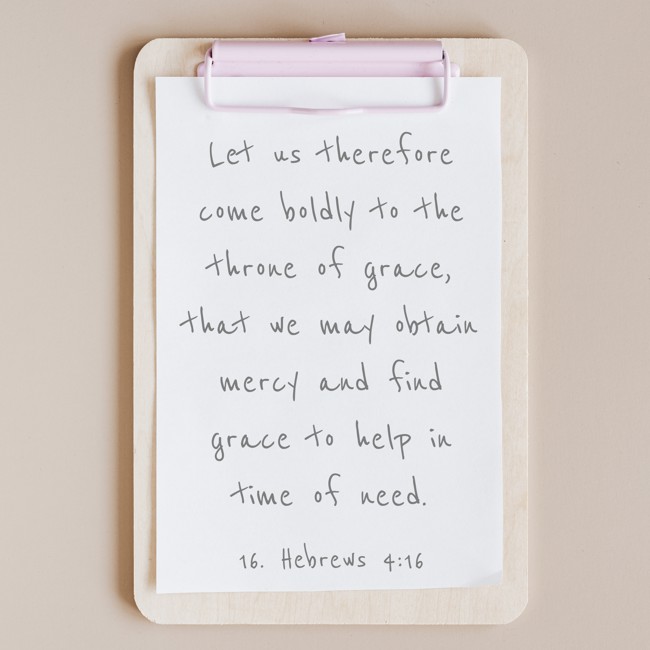 Let us therefore
come boldly to the
throne of grace,
that we may obtain
mercy and find
grace to help in
time of need.
16. Hebrews 4:16